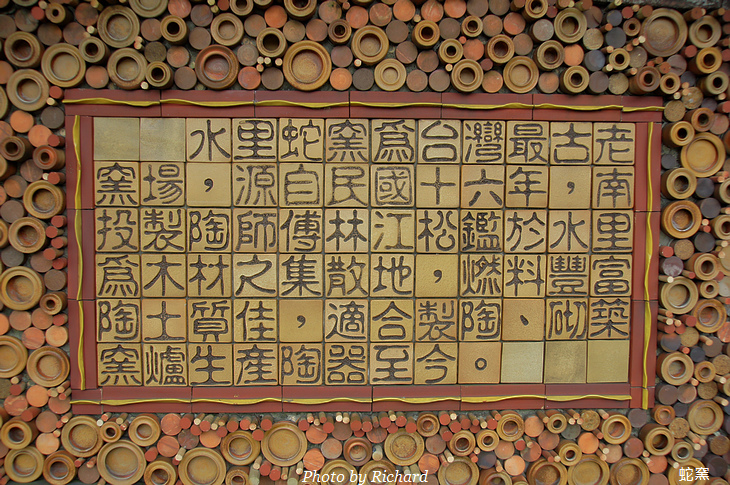 水里蛇窯為台灣最古老
窯場，源自民國十六年，南
投製陶師傅林江松鑑於水里
為木材之集散地，燃料豐富
陶土質佳，適合製陶、砌築
窯爐生產陶器至今。
Photo by Richard
蛇窯